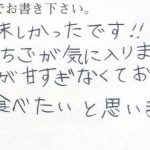 でお書き下さい。
味しかったです!!
ちごが気に入りま
が甘すぎなくてお
食べたいと思いま